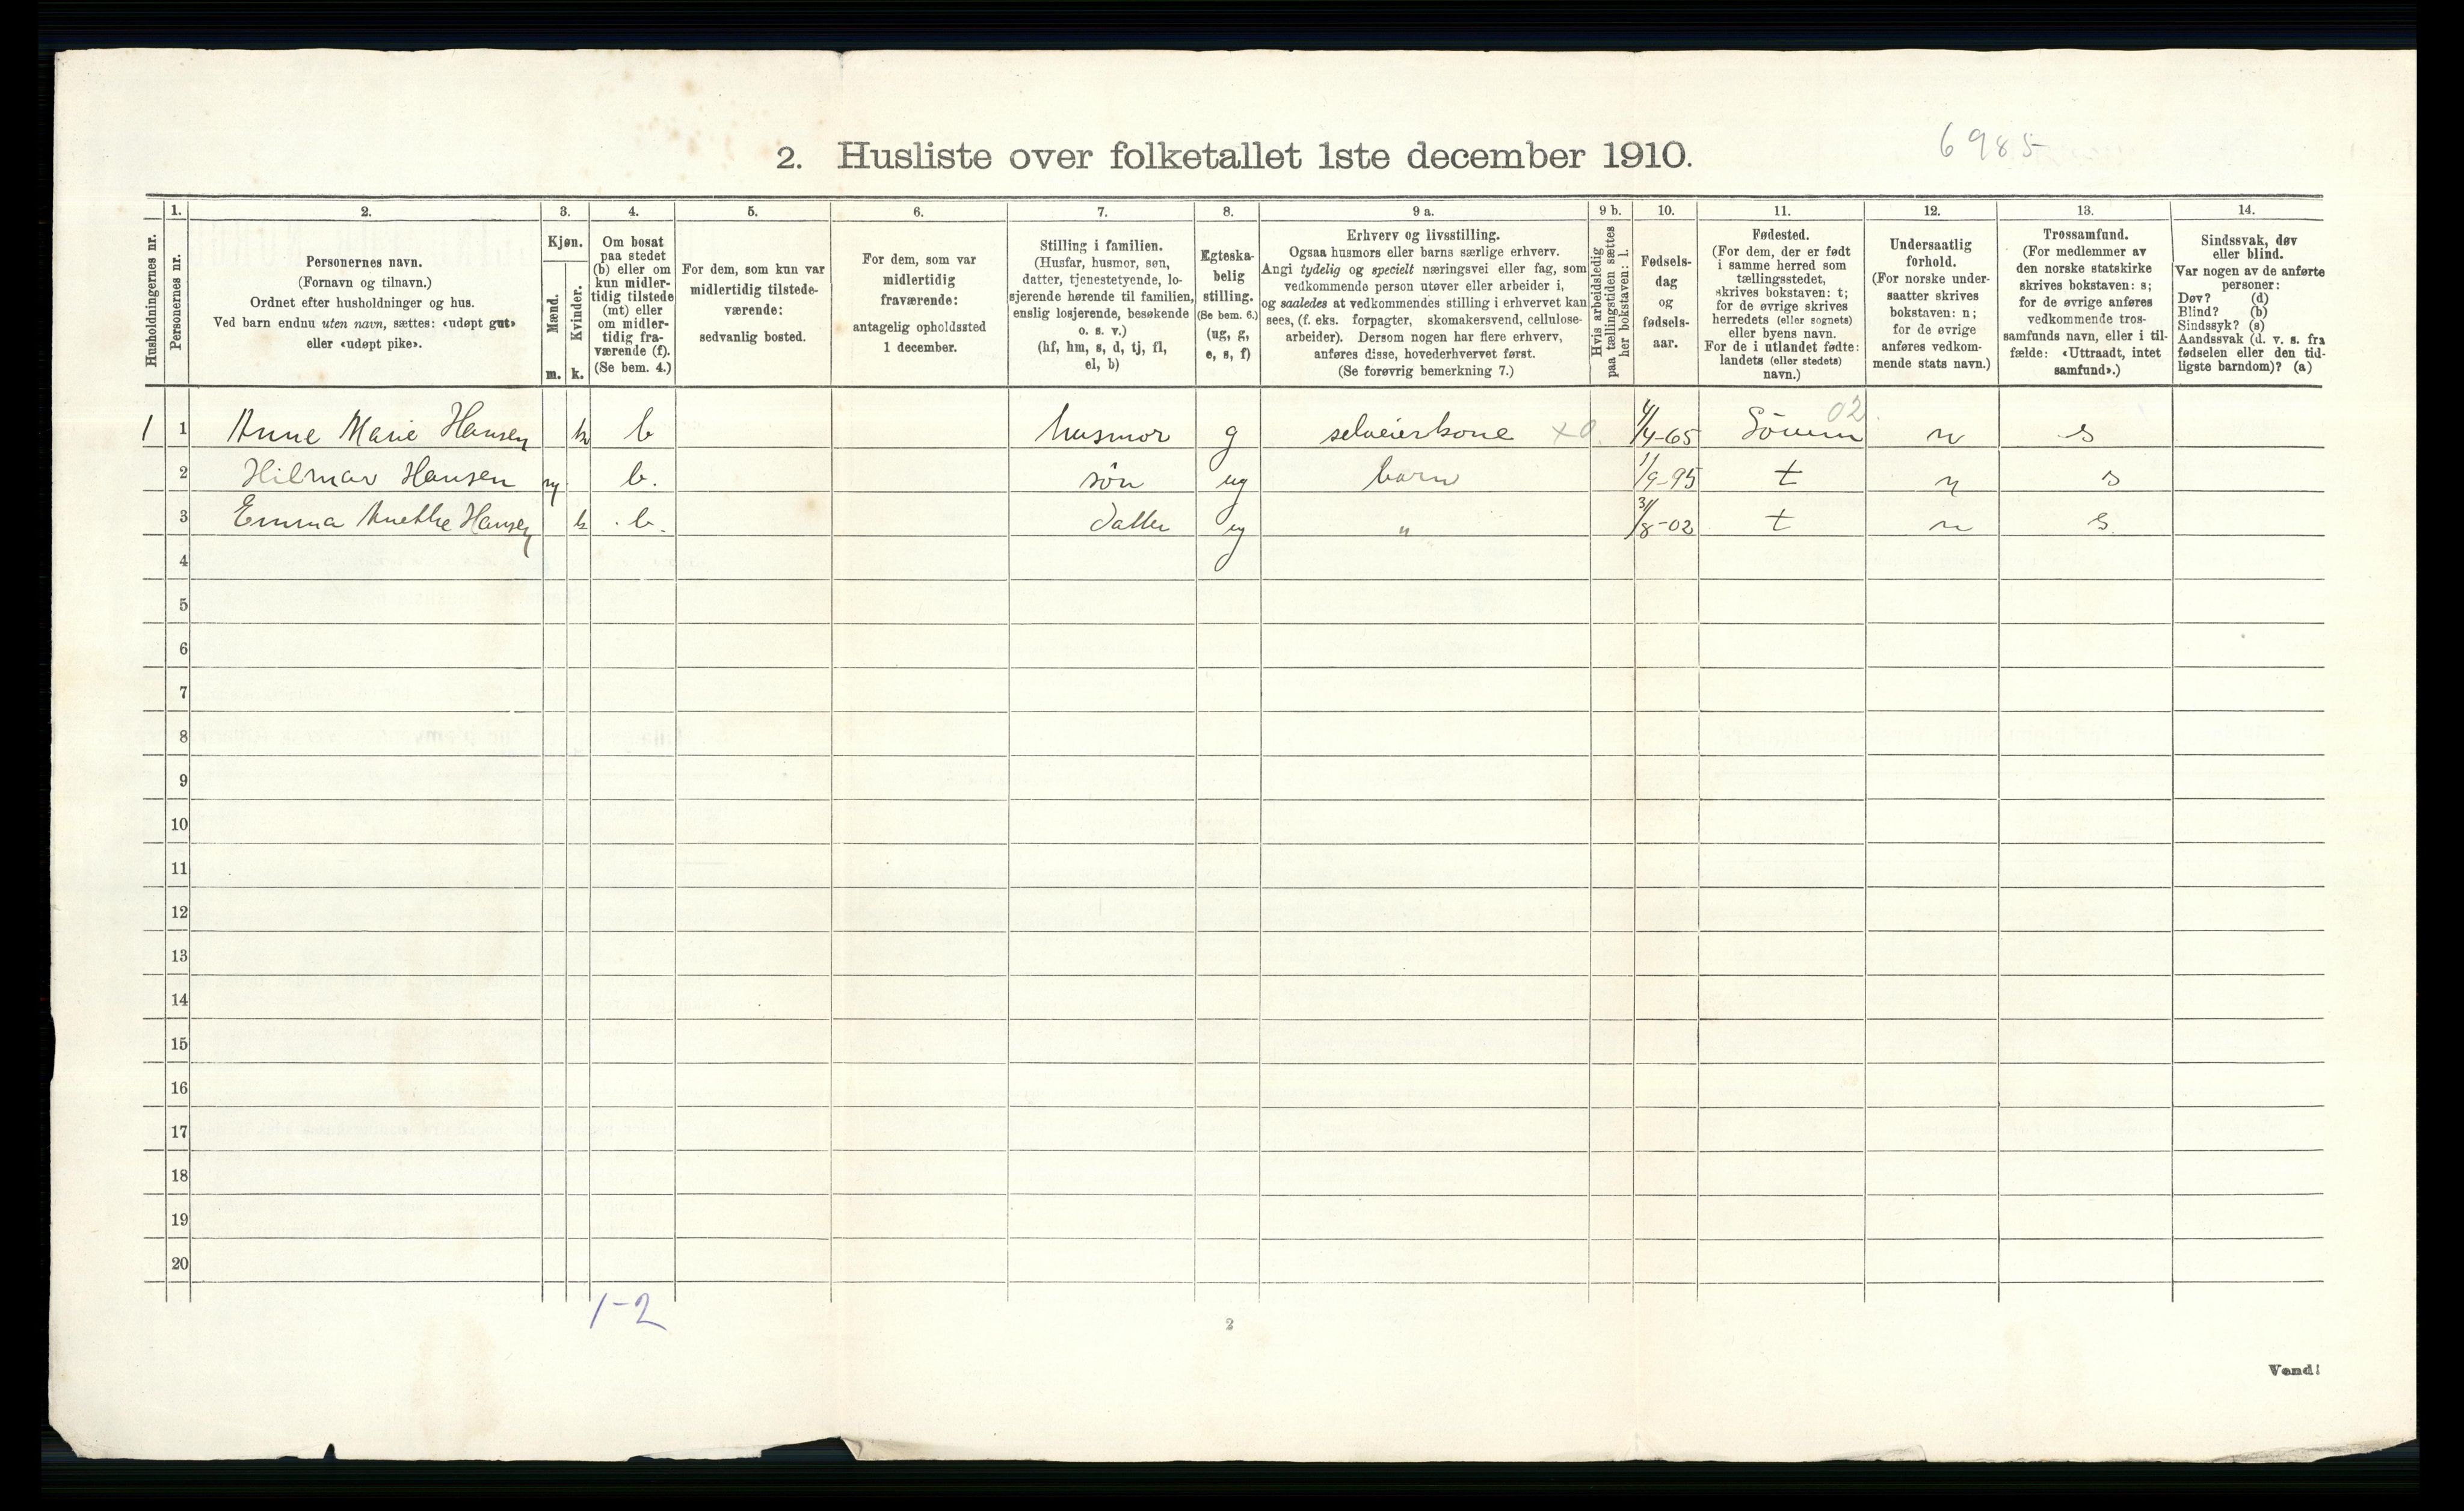 6985
2. Husliste over folketallet 1ste december 1910.
Husholdningernes nr.
1.
Personernes nr.
2.
Personernes navn.
(Fornavn og tilnavn.)
Ordnet efter husholdninger og hus.
Ved barn endnu uten navn, sættes: «udøpt gut»
eller «udøpt pike».
3.
Kjøn.
Mænd.
m.
Kvinder.
k.
4.
Om bosat
paa stedet
(b) eller om
kun midler-
tidig tilstede
(mt) eller
om midler-
tidig fra-
værende (f).
(Se bem. 4.)
5.
For dem, som kun var
midlertidig tilstede-
værende:
sedvanlig bosted.
6.
For dem, som var
midlertidig
fraværende:
antagelig opholdssted
1 december.
7.
Stilling i familien.
(Husfar, husmor, søn,
datter, tjenestetyende, lo-
sjerende hørende til familien,
enslig losjerende, besøkende
o. s. v.)
(hf, hm, s, d, tj, fl,
el, b)
8.
Egteska-
belig
stilling.
(Se bem. 6.)
(ug, g,
e, s, f)
9 a.
Erhverv og livsstilling.
Ogsaa husmors eller barns særlige erhverv.
Angi tydelig og specielt næringsvei eller fag, som
vedkommende person utøver eller arbeider i,
og saaledes at vedkommendes stilling i erhvervet kan
sees, (f. eks. forpagter, skomakersvend, cellulose-
arbeider). Dersom nogen har flere erhverv,
anføres disse, hovederhvervet først.
(Se forøvrig bemerkning 7.)
9 b.
Hvis arbeidsledig
paa tællingstiden sættes
her bokstaven: l.
10.
Fødsels-
dag
og
fødsels-
aar.
11.
Fødested.
(For dem, der er født
i samme herred som
tællingsstedet,
skrives bokstaven: t;
for de øvrige skrives
herredets (eller sognets)
eller byens navn.
For de i utlandet fødte:
landets (eller stedets)
navn.)
12.
Undersaatlig
forhold.
(For norske under-
saatter skrives
bokstaven: n;
for de øvrige
anføres vedkom-
mende stats navn.)
13.
Trossamfund.
(For medlemmer av
den norske statskirke
skrives bokstaven: s;
for de øvrige anføres
vedkommende tros-
samfunds navn, eller i til-
fælde: «Uttraadt, intet
samfund».)
14.
Sindssvak, døv
eller blind.
Var nogen av de anførte
personer:
Døv? (d)
Blind? (b)
Sindssyk? (s)
Aandssvak (d. v. s. fra
fødselen eller den tid-
ligste barndom)? (a)
1 1 Anne Marie Hansen k b husmor g selveierkone x0. 4/4-65 02. n s
2 Hilmar Hansen m b. søn ug barn 1/9-95 t n s
3 Emma Anethe Hansen k b. datter ug " 31/8-02 t n s
4
5
6
7
8
9
10
11
12
13
14
15
16
17
18
19
20
1-2
2
Vend!